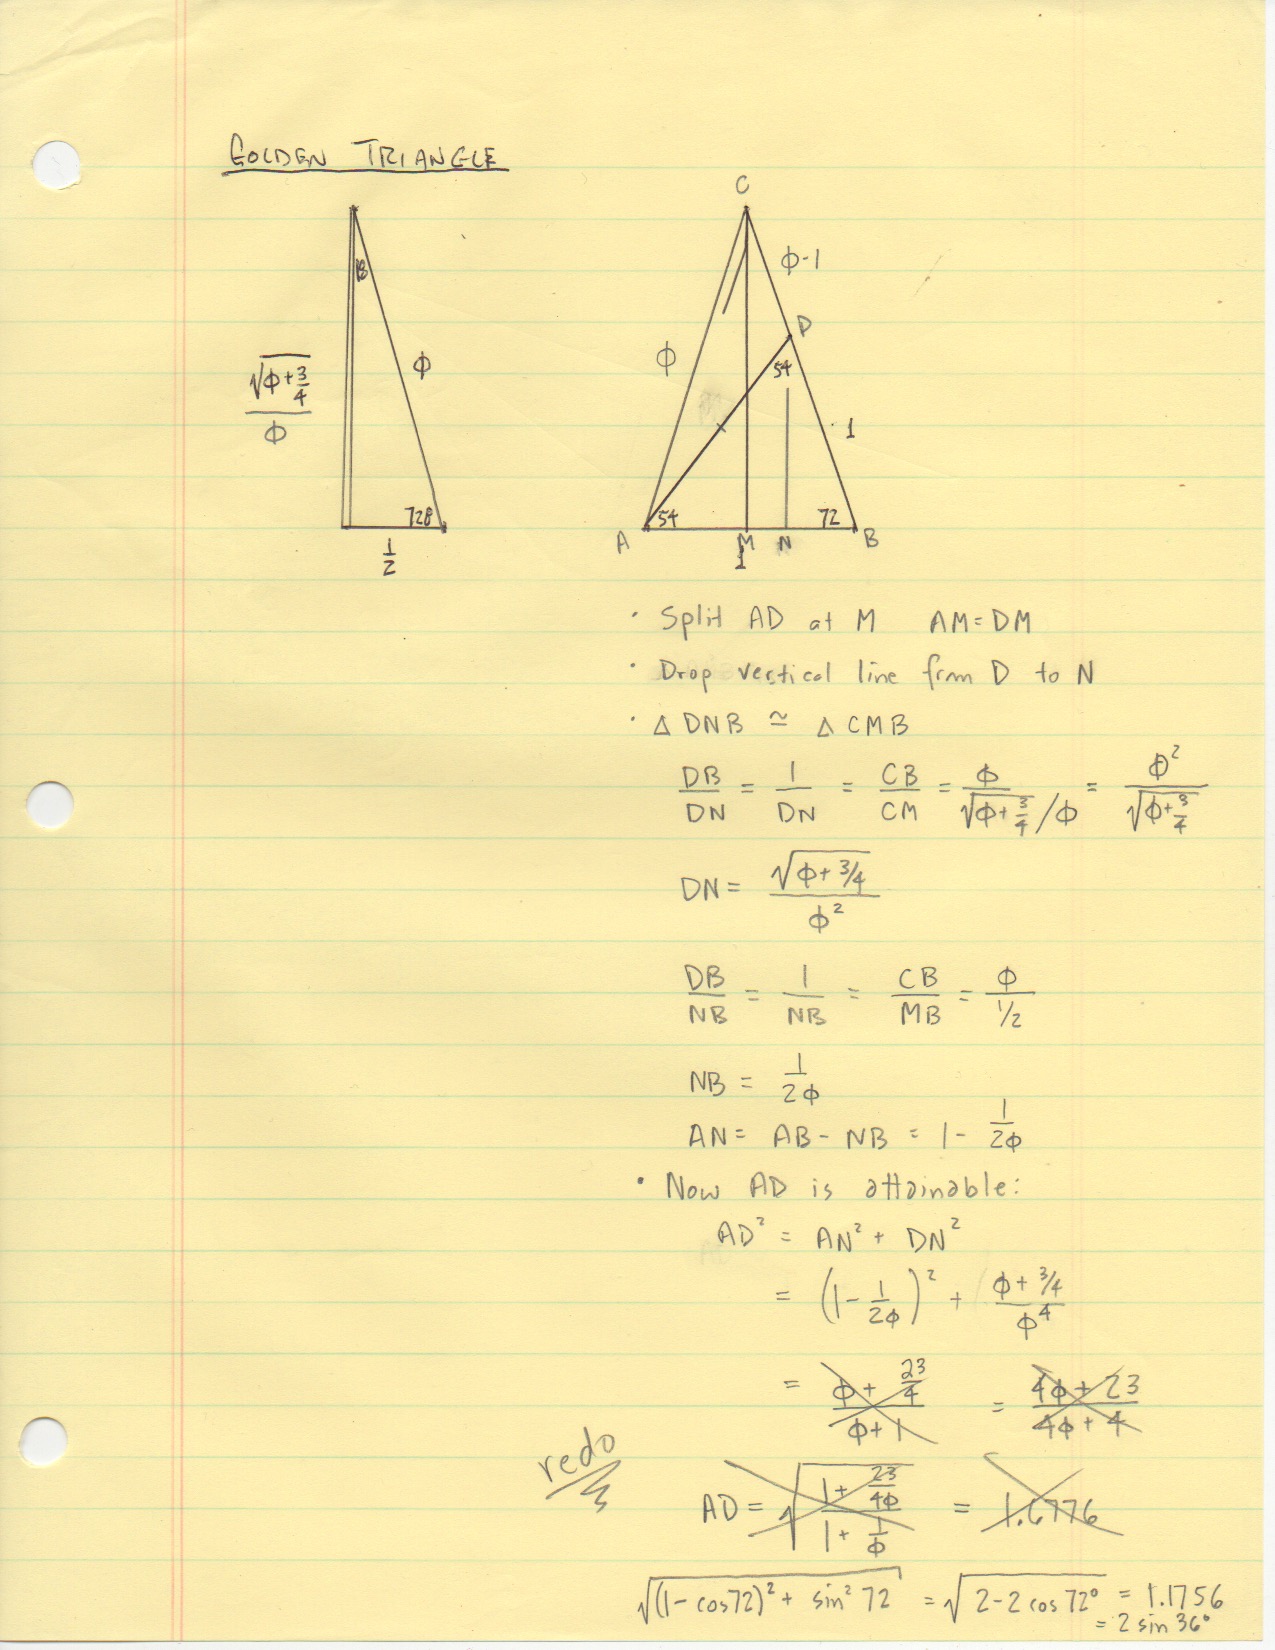 GOLDEN TRIANGLE
C
18
φ-1
D
√(φ+3/4)/φ
φ
φ
54
1
728
54
72
A
M
N
B
1/2
1
· Split AD at M AM=DM
· Drop vertical line from D to N
· Δ DNB ≃ Δ CMB
DB/DN = 1/DN = CB/CM = φ/(√(φ+3/4)/φ) = φ²/√(φ+3/4)
DN = √(φ+3/4)/φ²
DB/NB = 1/NB = CB/MB = φ/(1/2)
NB = 1/2φ
AN = AB - NB = 1 - 1/2φ
· Now AD is attainable:
AD² = AN² + DN²
= (1 - 1/2φ)² + (φ+3/4)/φ⁴
= (φ + 23/4)/(φ+1) = (4φ+23)/(4φ+4)
redo
AD = √((1+23/4φ)/(1+1/φ)) = 1.6776
√((1-cos72)² + sin² 72) = √(2-2 cos 72°) = 1.1756
= 2 sin 36°